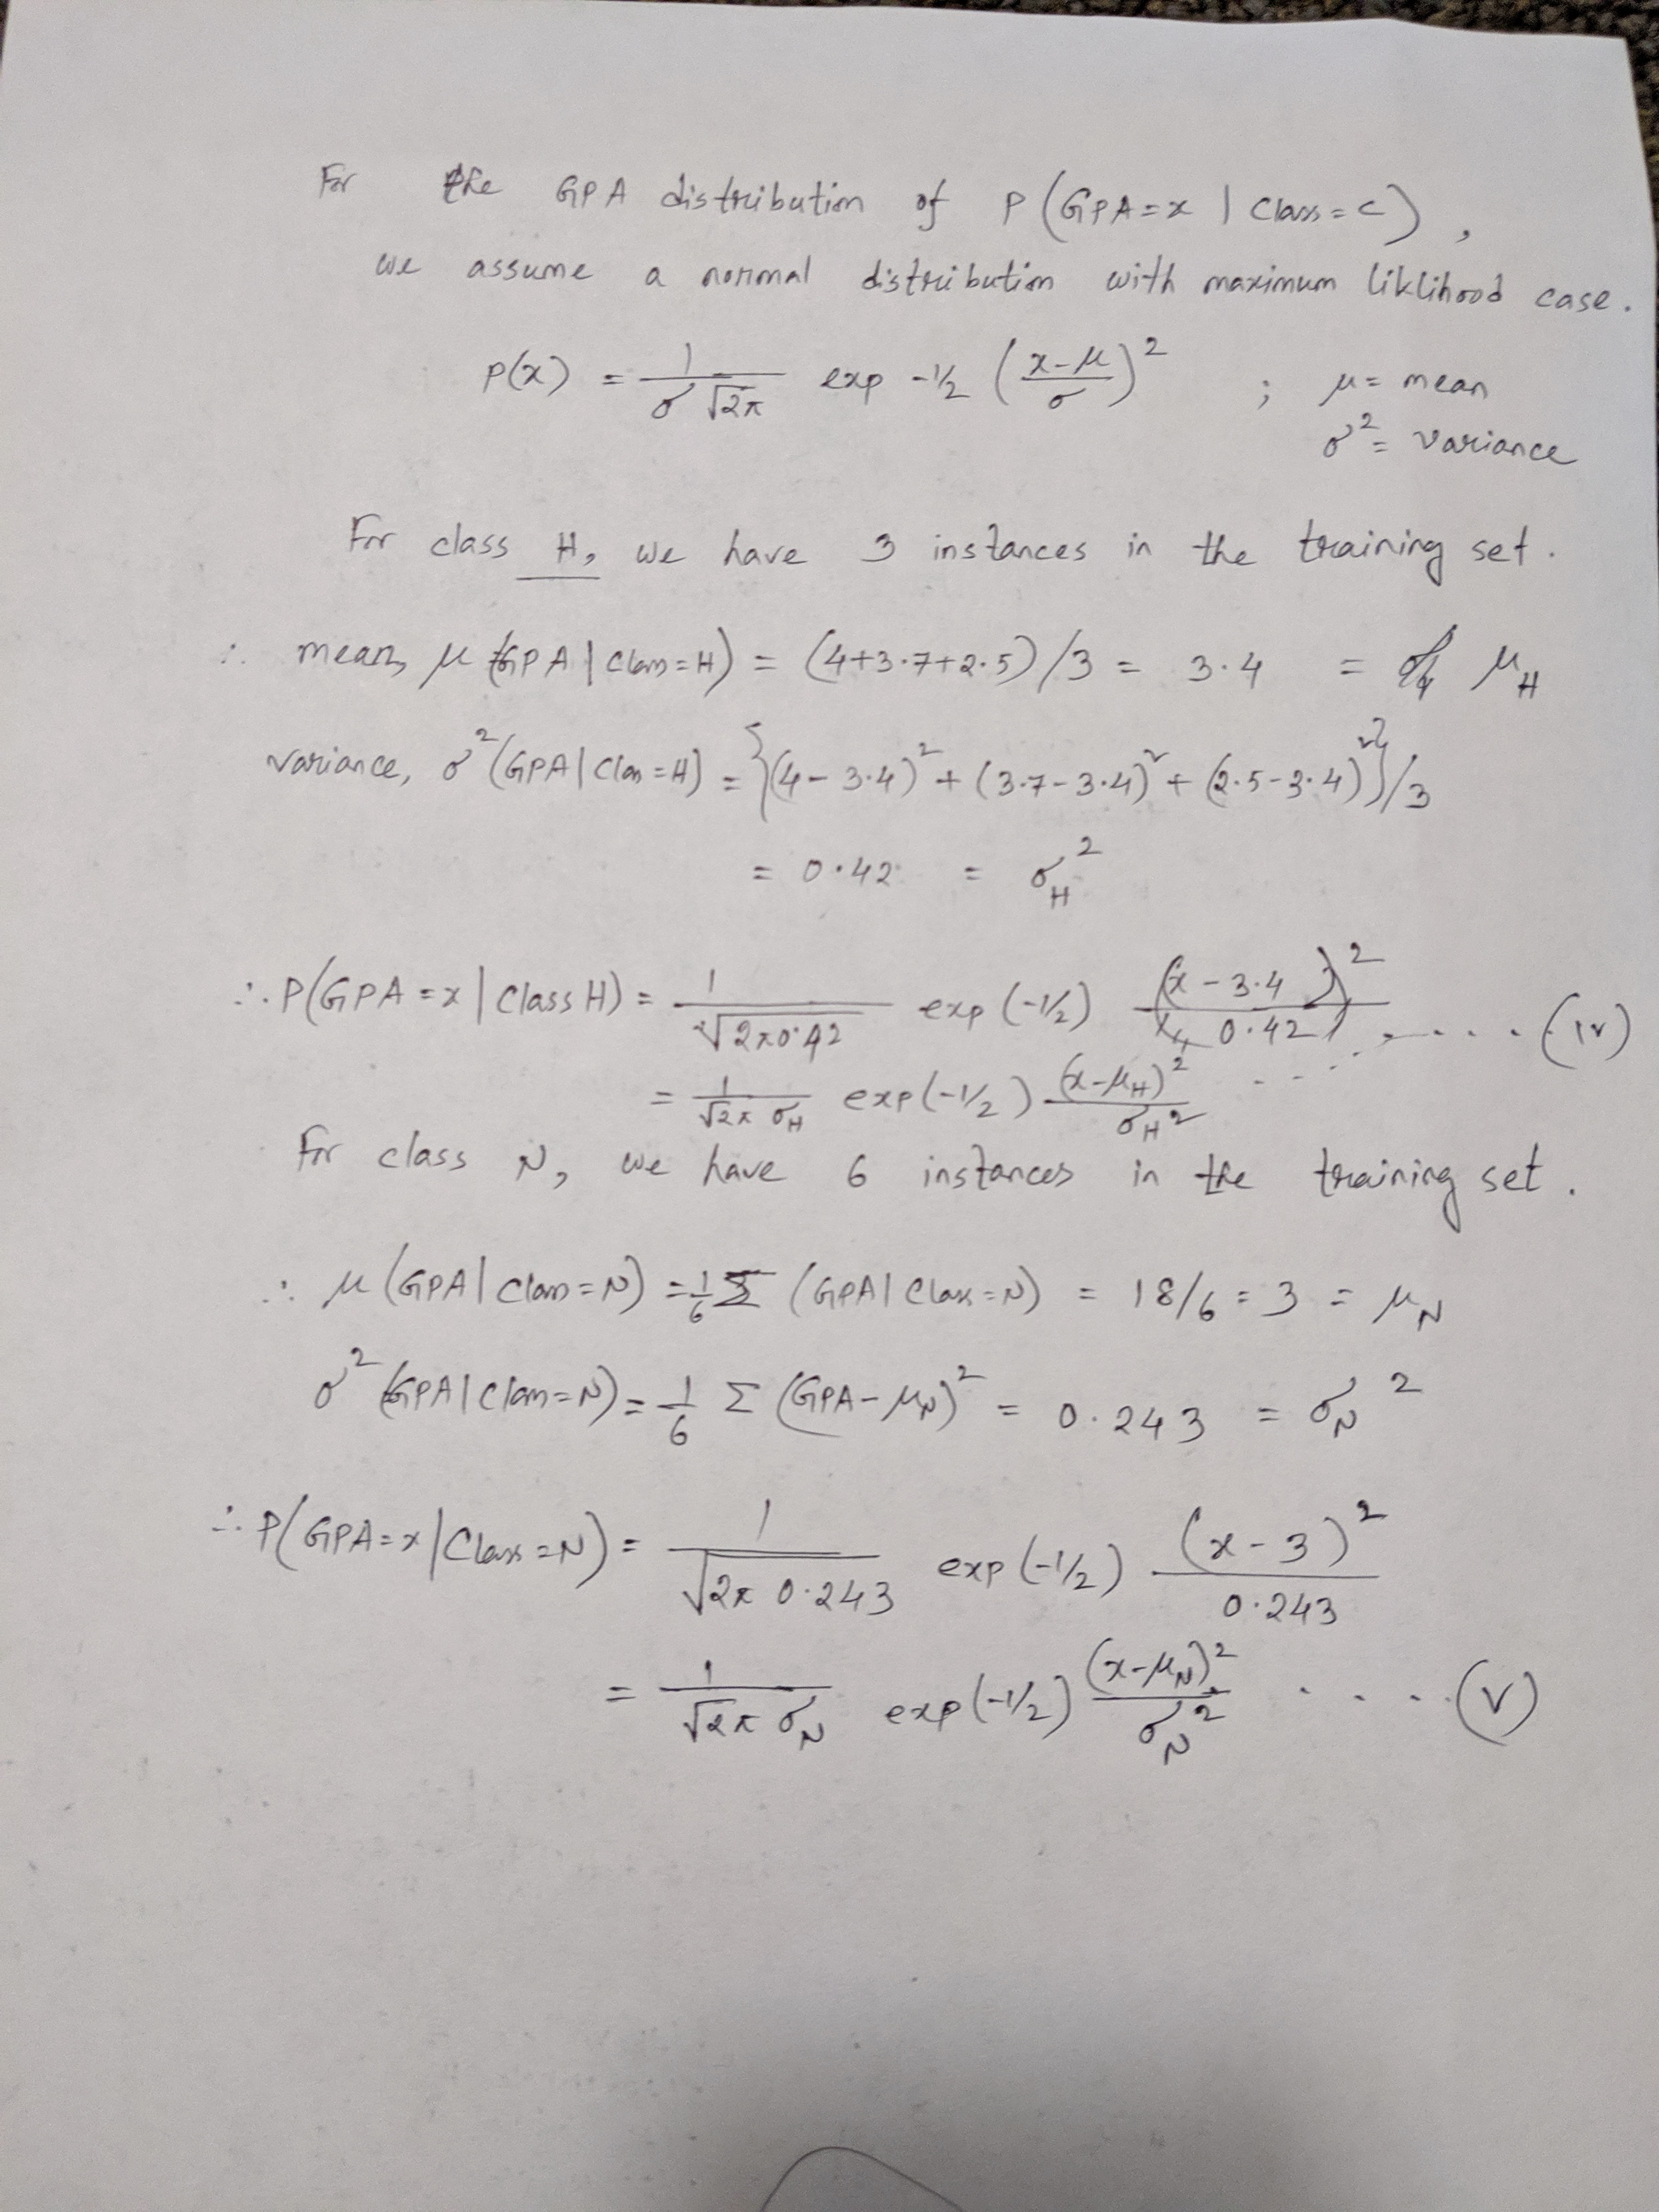 For the GPA distribution of P(GPA=x | Class=C),
we assume a normal distribution with maximum liklihood case.
P(x) = 1/(σ√2π) exp -1/2 ((x-μ)/σ)² ; μ = mean
σ² = variance
For class H, we have 3 instances in the training set.
∴ mean, μ(GPA | Class=H) = (4+3.7+2.5)/3 = 3.4 = μ_H
variance, σ²(GPA | Class=H) = {(4-3.4)² + (3.7-3.4)² + (2.5-3.4)²}/3
= 0.42 = σ_H²
∴ P(GPA=x | Class H) = 1/√(2π0.42) exp(-1/2) (x-3.4)²/0.42 .... (iv)
= 1/(√2π σ_H) exp(-1/2) (x-μ_H)²/σ_H²
For class N, we have 6 instances in the training set.
∴ μ(GPA | Class=N) = 1/6 Σ (GPA | Class=N) = 18/6 = 3 = μ_N
σ²(GPA | Class=N) = 1/6 Σ (GPA-μ_N)² = 0.243 = σ_N²
∴ P(GPA=x | Class=N) = 1/√(2π 0.243) exp(-1/2) (x-3)²/0.243
= 1/(√2π σ_N) exp(-1/2) (x-μ_N)²/σ_N² .... (v)